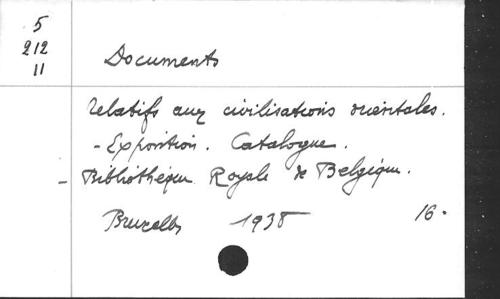 5
212
11
Documents
relatifs aux civilisations orientales.
- Exposition. Catalogue.
- Bibliothèque Royale de Belgique.
Bruxelles 1938 16°